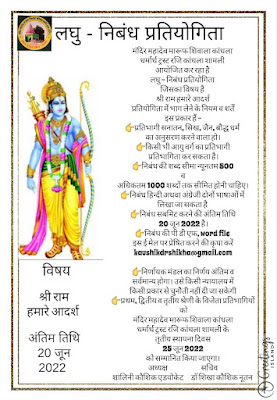 लघु - निबंध प्रतियोगिता
मंदिर महादेव मारूफ शिवाला कांधला
धर्मार्थ ट्रस्ट रजि कांधला शामली
आयोजित कर रहा है
लघु - निबंध प्रतियोगिता
जिसका विषय है
श्री राम हमारे आदर्श
प्रतियोगिता में भाग लेने के नियम व शर्तें
इस प्रकार हैं -
👉प्रतिभागी सनातन, सिख, जैन, बौद्ध धर्म
का अनुसरण करने वाला हो।
👉किसी भी आयु वर्ग का प्रतिभागी
प्रतिभागिता कर सकता है।
👉निबंध की शब्द सीमा न्यूनतम 500
व
अधिकतम 1000 शब्दों तक सीमित होनी चाहिए।
👉निबंध हिन्दी अथवा अंग्रेजी दोनों भाषाओं में
लिखा जा सकता है
👉निबंध सबमिट करने की अंतिम तिथि
20 जून 2022 है।
👉निबंध की पी डी एफ, word file
इस ई मेल पर प्रेषित करने की कृपा करें
kaushikdrshikha@gmail.com
👉निर्णायक मंडल का निर्णय अंतिम व
सर्वमान्य होगा। उसे किसी न्यायालय में
किसी प्रकार से चुनौती नहीं दी जा सकेगी
👉प्रथम, द्वितीय व तृतीय श्रेणी के विजेता प्रतिभागियों
को
मंदिर महादेव मारूफ शिवाला कांधला
धर्मार्थ ट्रस्ट रजि कांधला शामली के
तृतीय स्थापना दिवस
25 जून 2022
को सम्मानित किया जाएगा।
अध्यक्ष सचिव
शालिनी कौशिक एडवोकेट डॉ शिखा कौशिक नूतन
विषय
श्री राम
हमारे आदर्श
अंतिम तिथि
20 जून
2022
Greetings
ISLAND